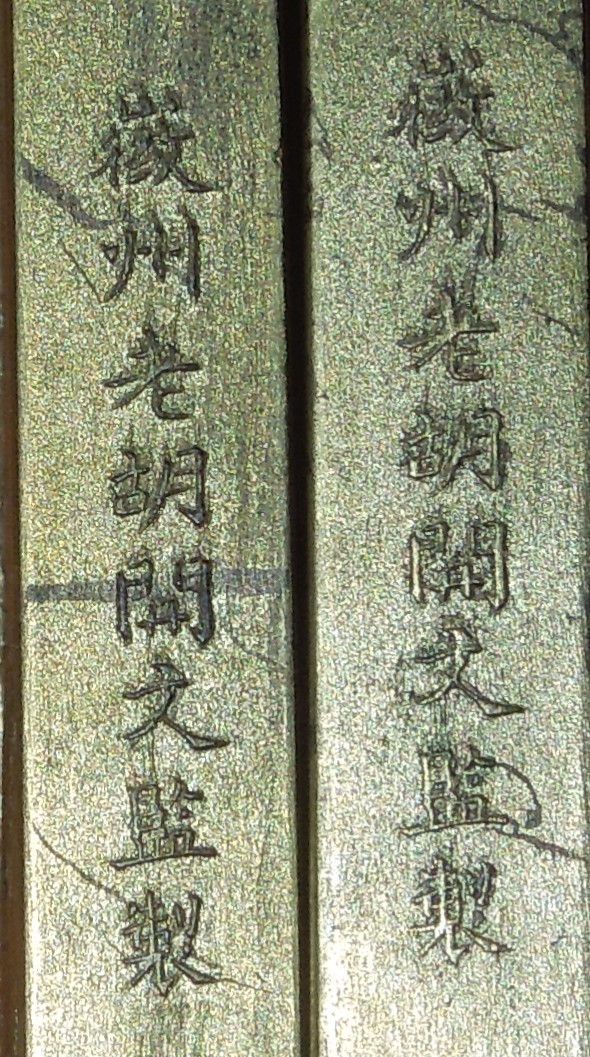 徽州老胡開文監製
徽州老胡開文監製